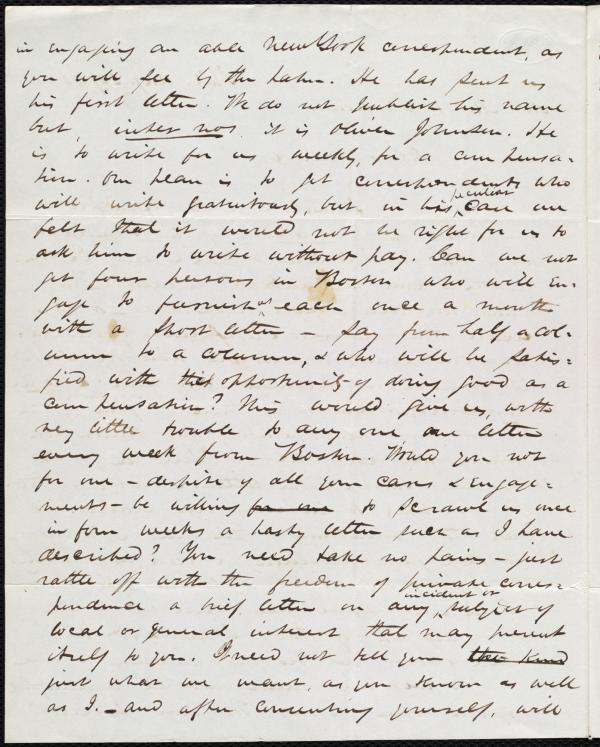 in engaging an able New York correspondent, as
you will see by the paper. He has sent us
his first letter. We do not publish his name
but, inter nos, it is Oliver Johnson. He
is to write for us weekly, for a compensa-
tion. Our plan is to get correspondents who
will write gratuitously, but in his peculiar case we
felt that it would not be right for us to
ask him to write without pay. Can we not
get four persons in Boston who will en-
gage to furnish us each once a month
with a short letter – say from half a col-
umn to a column, & who will be satis-
fied with the opportunity of doing good as a
compensation? This would give us, with
very little trouble to any one, one letter
every week from Boston. Would you not
for one – despite of all your cares & engage-
ments – be willing for one to scrawl us once
in four weeks a hasty letter such as I have
described? You need take no pains – just
rattle off with the freedom of private corres-
pondence a brief letter on any incident or subject of
local or general interest that may present
itself to you. I need not tell you the kind
just what we want, as you know as well
as I. – and after consenting yourself, will